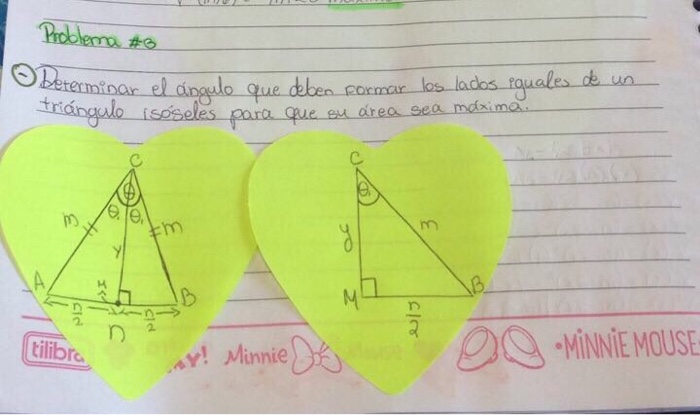 Problema #3
Determinar el ángulo que deben formar los lados iguales de un
triángulo isóseles para que su área sea máxima.
C
θ
θ₁ θ₁
m m
y
A M B
n/2 n/2
n
C
θ₁
y m
M B
n/2
tilibra Minnie •MINNIE MOUSE